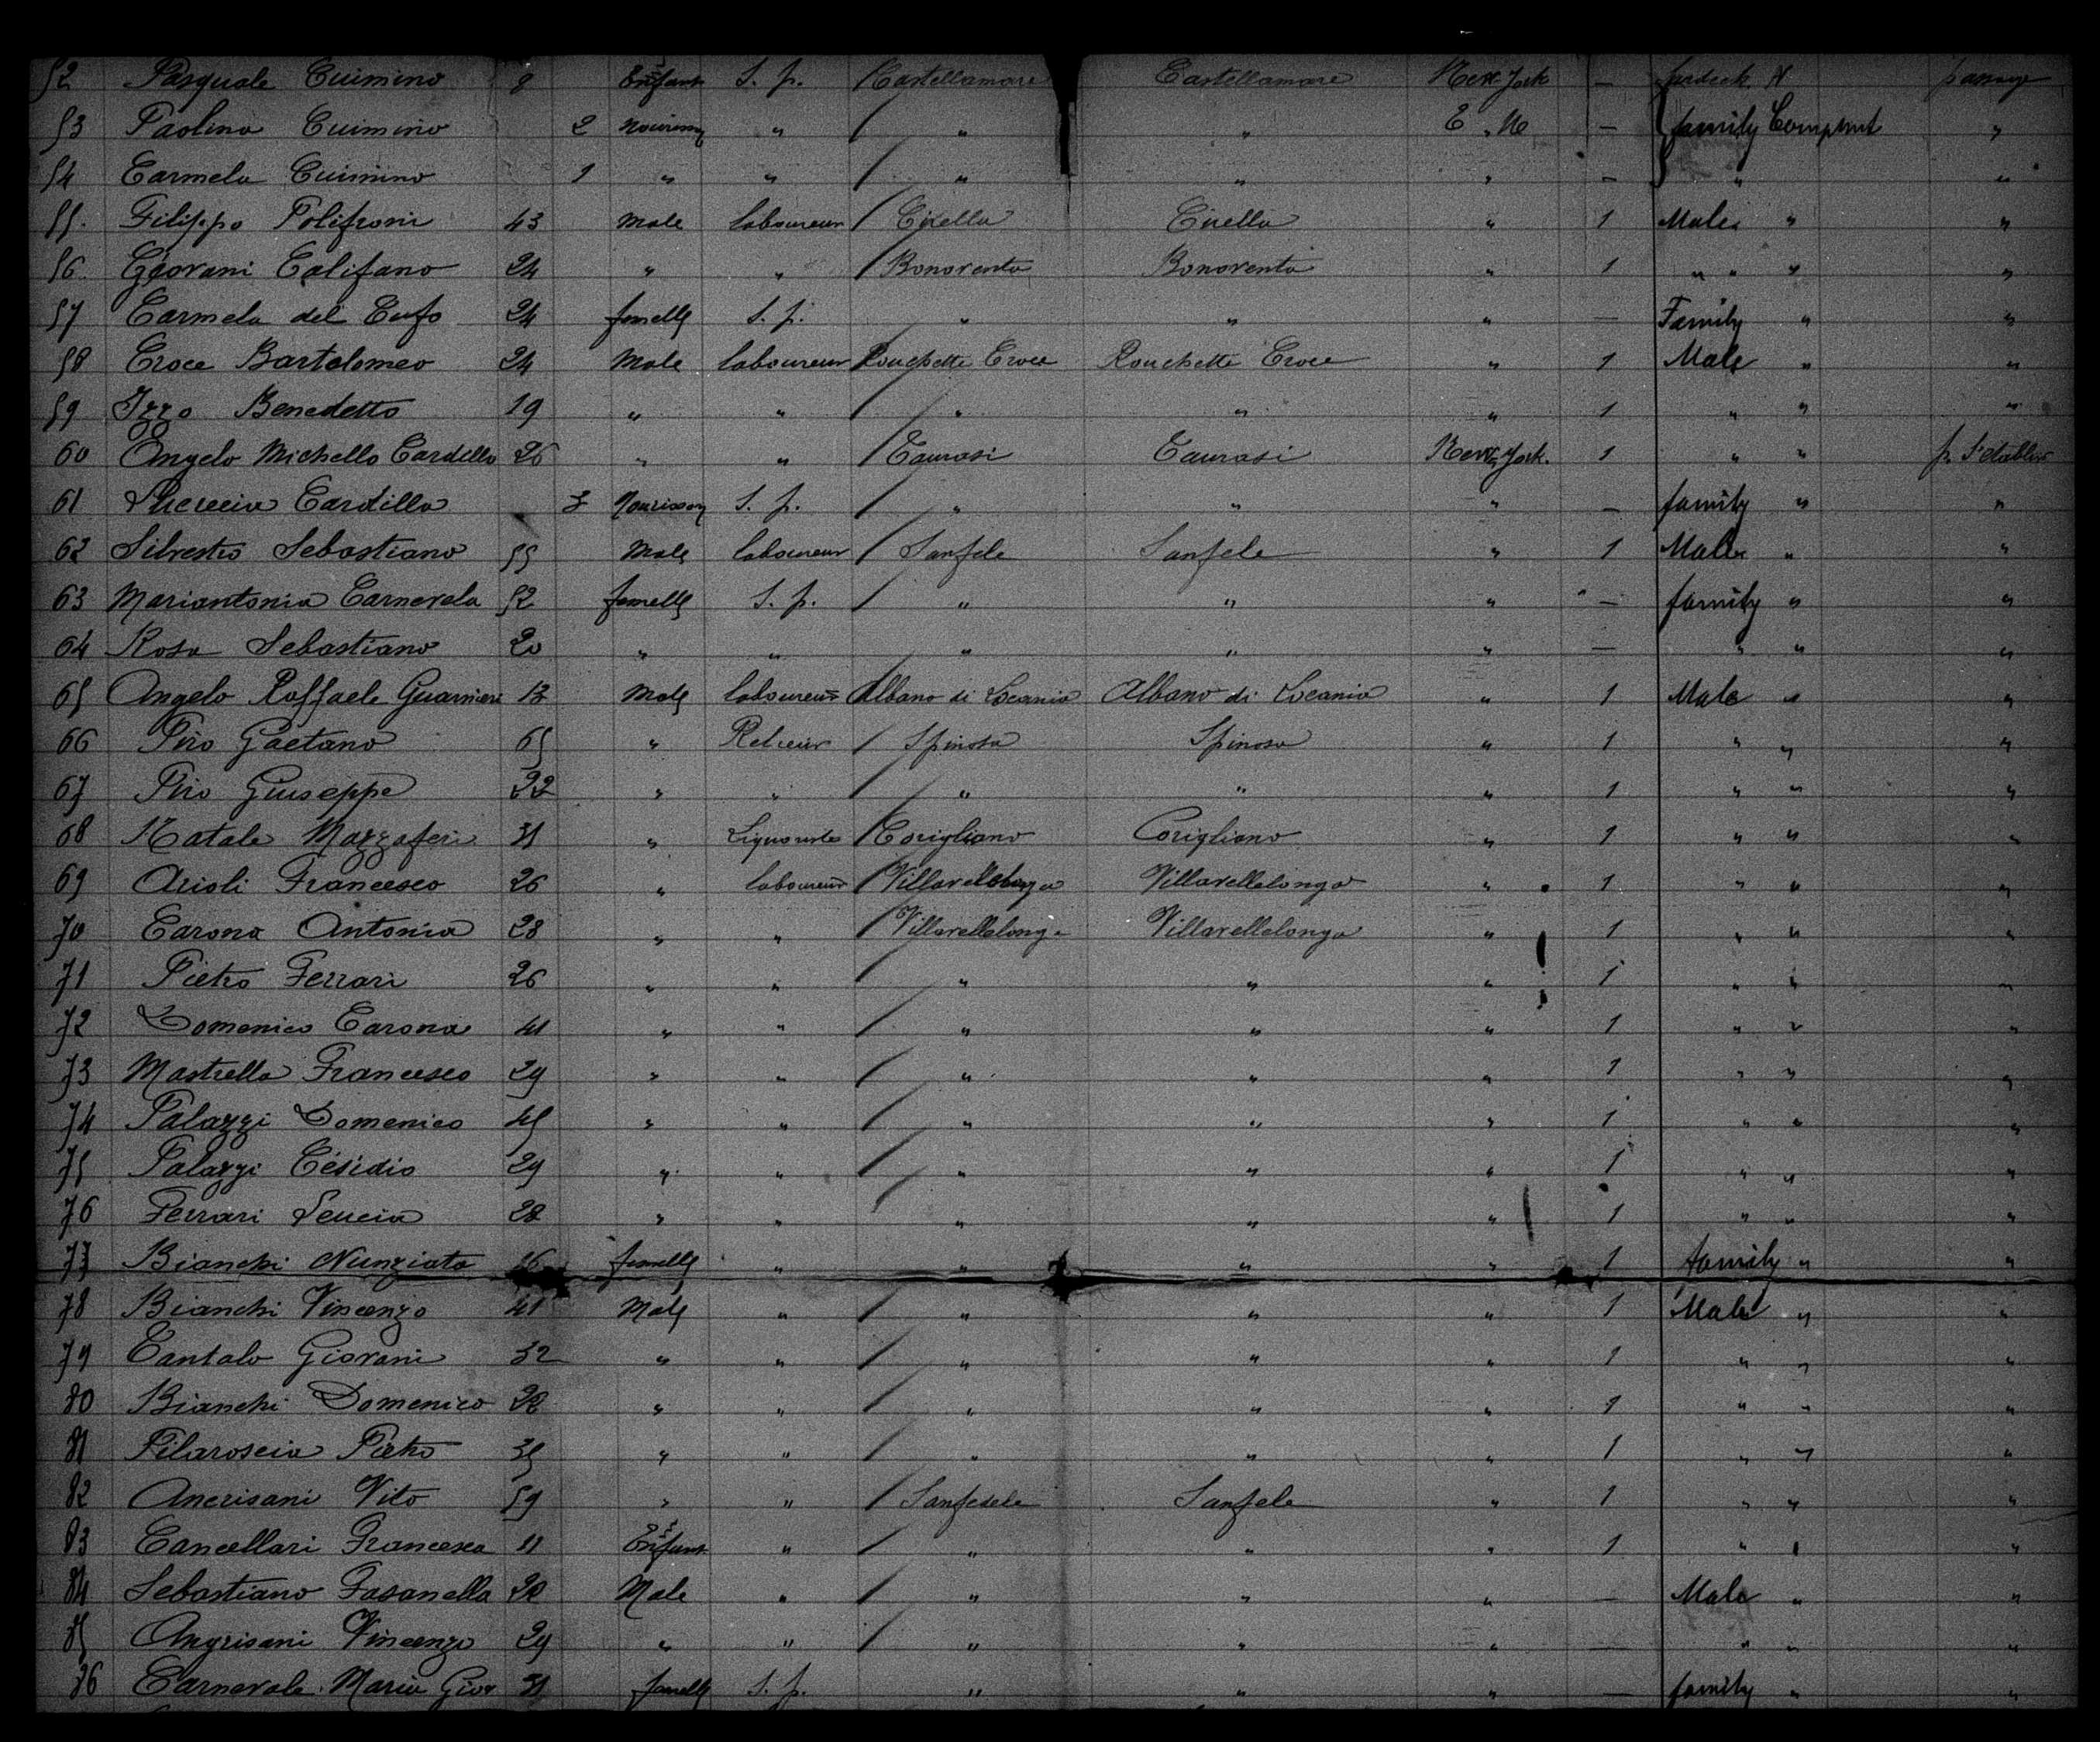 52 Pasquale Cuimino 8 Enfant S. p. Castellamare Castellamare New-York — P. passage
53 Paolino Cuimino 2 " " " — family Comptmt "
54 Carmela Cuimino 1 " " " " " — " "
55. Filippo Polifroni 43 Male laboureur Cirella Cirella " 1 Male " "
56. Giovani Califano 24 " " Bonoventa Bonoventa " 1 " " " "
57 Carmela del Cufo 24 femelle S. p. " " " — Family " "
58 Croce Bartolomeo 24 Male laboureur Rouchette Croce Rouchette Croce " 1 Male " "
59 Izzo Benedetto 19 " " " " " 1 " " "
60 Angelo Michello Cardillo 26 " " Taurasi Taurasi New-York. 1 " " p. S'établir
61 Cardilla 3 Nourisson S. p. " " " — family " "
62 Silvestro Sebastiano 55 Male laboureur Sanfele Sanfele " 1 Male " "
63 Mariantonia Carnevala 52 femelle S. p. " " " — family " "
64 Rosa Sebastiano 20 " " " " " — " " "
65 Angelo Raffaele Guarnieri 13 Male laboureur Albano di Lucania Albano di Lucania " 1 Male " "
66 Piro Gaetano 65 " Relieur Spinosa Spinosa " 1 " " "
67 Piro Giuseppe 22 " " " " " 1 " " "
68 Natale Mazzaferi 31 " Corigliano Corigliano " 1 " " "
69 Arioli Francesco 26 " laboureur Villavellelonga Villavellelonga " 1 " " "
70 Carona Antonia 28 " " Villavellelonga Villavellelonga " 1 " " "
71 Pietro Ferrari 26 " " " " " 1 " " "
72 Domenico Carona 41 " " " " " 1 " " "
73 Mastrella Francesco 29 " " " " " 1 " " "
74 Palazzi Domenico 45 " " " " " 1 " " "
75 Palazzi Césidio 29 " " " " " 1 " " "
76 Ferrari Leucia 28 " " " " " 1 " " "
77 Bianchi Nunziata femelle " " " " 1 family " "
78 Bianchi Vincenzo 41 Male " " " " 1 Male " "
79 Cantalo Giovani 32 " " " " " 1 " " "
80 Bianchi Domenico 28 " " " " " 1 " " "
81 Pilaroscia Pietro 35 " " " " " 1 " " "
82 Ancrisani Vito 59 " " Sanfesele Sanfele " 1 " " "
83 Cancellari Francesca 11 Enfant " " " " 1 " " "
84 Sebastiano Fasanella 28 Male " " " " — Male " "
85 Angrisani Vincenzo 29 " " " " " — " " "
86 Carnevale Maria Giov 31 femelle S. p. " " " — family " "